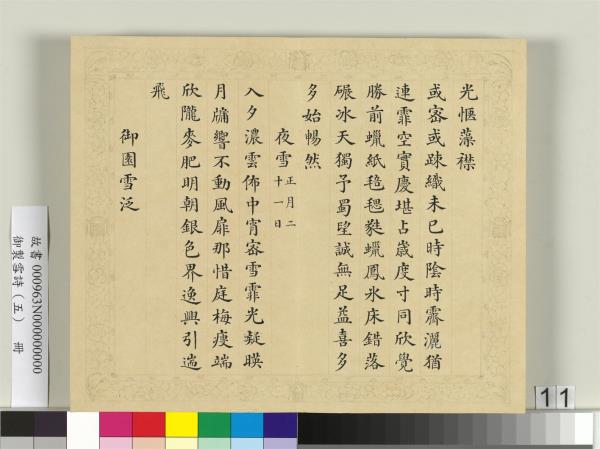 光愜藻襟
或密或疎織未已時陰時霽灑猶
連霏空實慶堪占歲度寸同欣覺
勝前蠟紙毰毸㲝蠟鳳氷床錯落
碾冰天獨予蜀望誠無足益喜多
多始暢然
夜雪正月二
十一日
入夕濃雲佈中宵密雪霏光凝暎
月牖響不動風扉那惜庭梅瘦端
欣隴麥肥明朝銀色界逸興引遄
飛
御園雪泛
故書 000963N000000000
御製雪詩(五) 冊
11